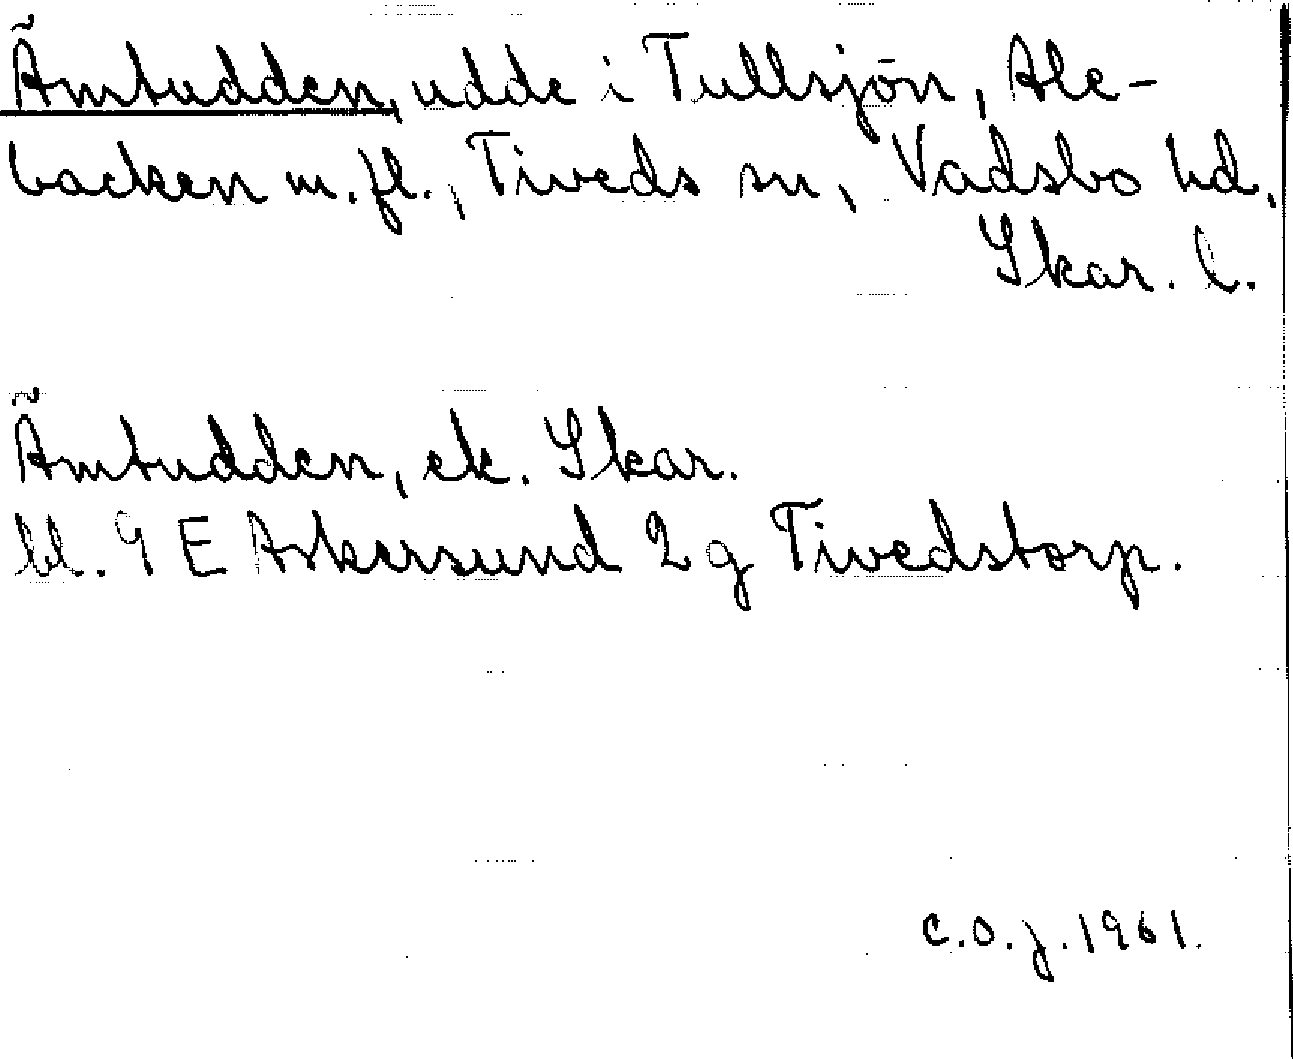 Ämtudden, udde i Tullsjön, Ale-
backen m.fl., Tiveds sn, Vadsbo hd,
Skar. l.
Ämtudden, ek. Skar.
bl. 9 E Askersund 2 g Tivedstorp.
C.O.J. 1961.